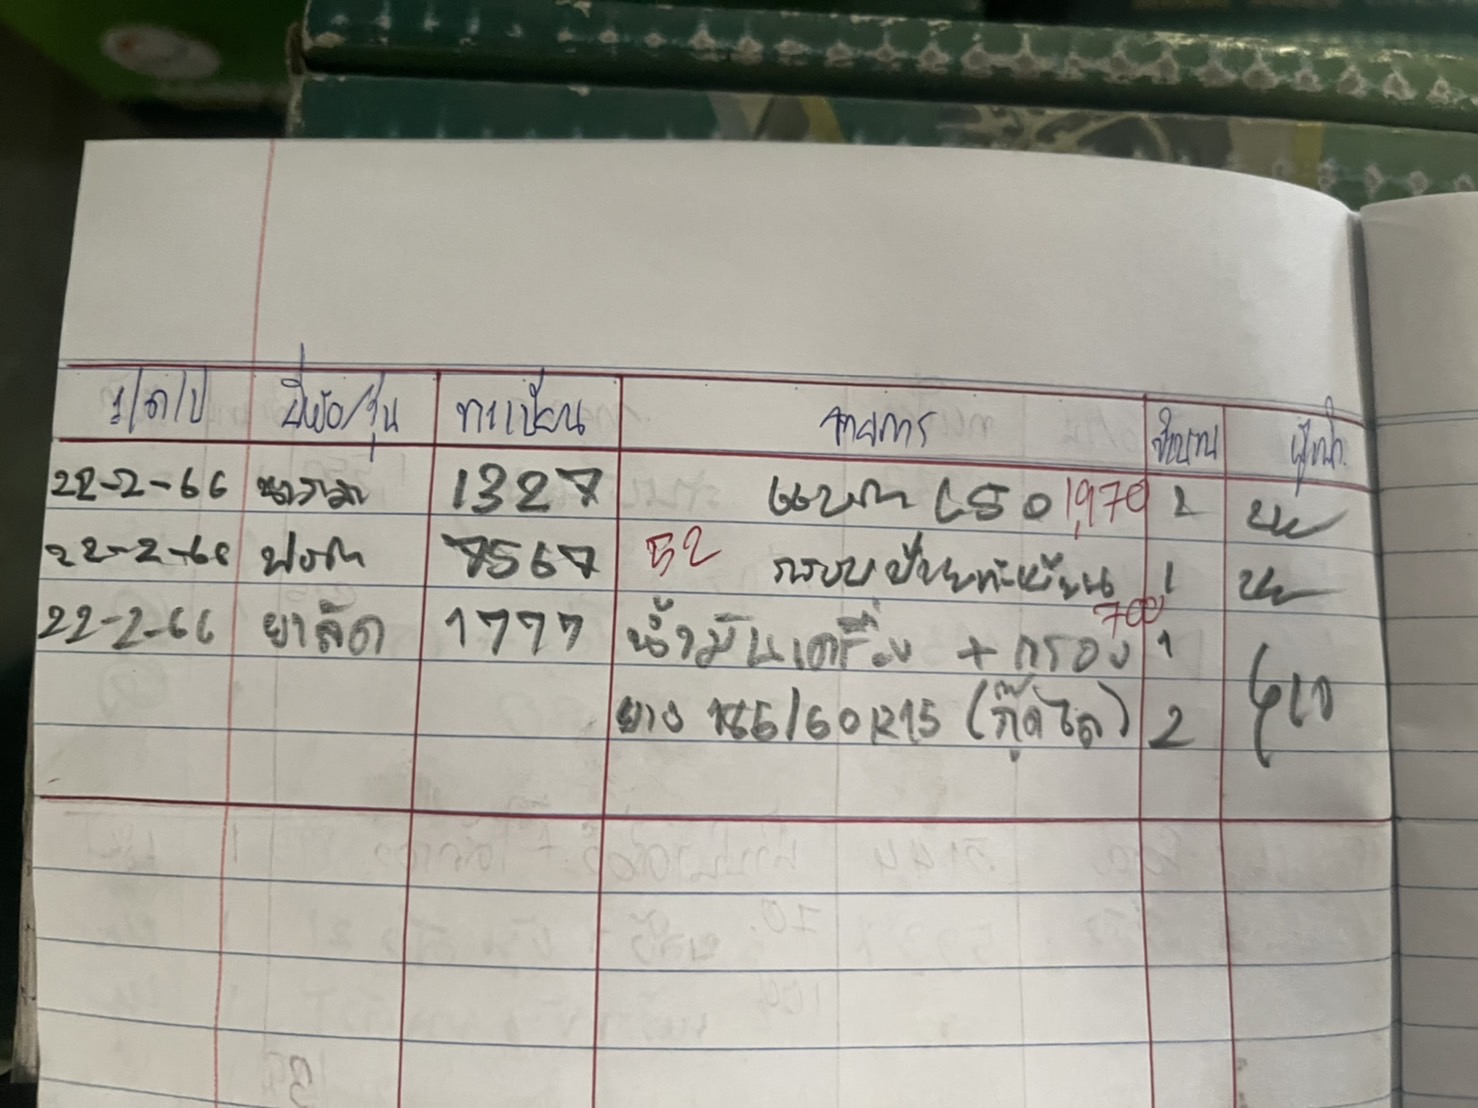 ว/ด/ป ยี่ห้อ/รุ่น ทะเบียน รายการ จำนวน ผู้ทำ
22-2-66 นาวาล่า 1327 แบต L50 1,970 2
22-2-66 ฟอด 7567 52 กรอบป้ายทะเบียน 1
22-2-66 ยาลัด 1777 น้ำมันเครื่อง + กรอง 700 1
ยาง 185/60R15 (กู๊ดไล) 2